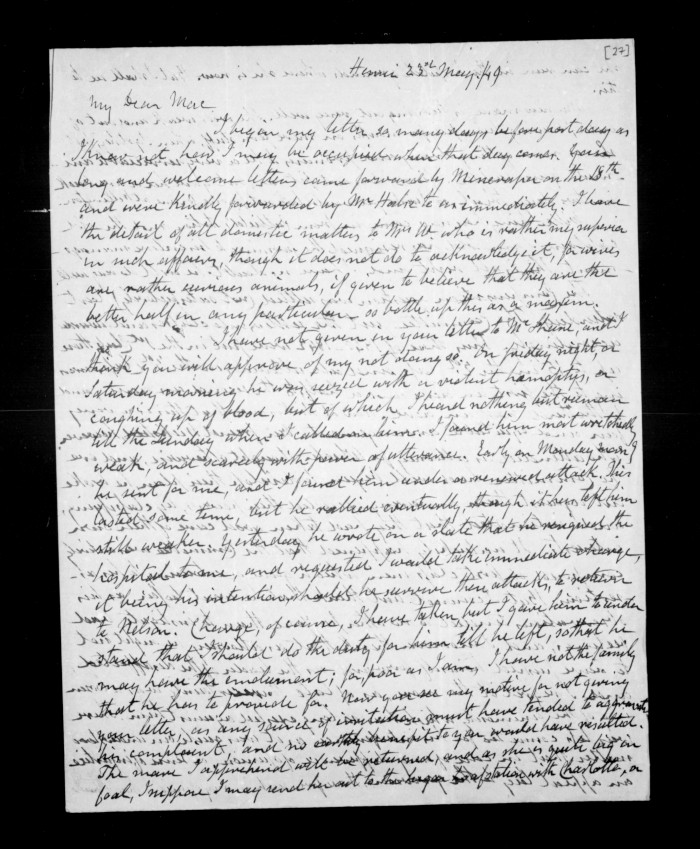 [27]
Henui 23rd May /49
My Dear Mac
I began my letter so many days before post day as
I know not how I may be occupied when that day comes. Your
long and welcome letters came forward by Minerva on the 18th
and were kindly forwarded by Mr Halse to us immediately. I leave
the detail of all domestic matters to Mrs W who is rather my superior
in such affairs, though it does not do to acknowledge it, for wives
are rather curious animals, if given to believe that they are the
better half in any particular – so bottle up this as a maxim.
I have not given in your letter to Mr and I
think you will approve of my not doing so. On friday night, or
Saturday morning he was seized with a violent hemoptysis, or
coughing up of blood, but of which I heard nothing but
till the Sunday when I called on him. I found him most wretchedly
weak, and scarcely with power of utterance. Early on Monday morng
he sent for me, and I found him under a renewed attack. This
lasted some time, but he rallied eventually, though it has left him
still weaker. Yesterday he wrote on a slate that he resigned the
hospital to me, and requested I would take immediate charge,
it being his intention, should he survive these attacks, to retire
to Nelson. Charge, of course, I have taken, but I gave him to under
stand that I should do the duty for him till he left, so that he
may have the emolument; for, poor as I am, I have not the family
that he has to provide for. Now you see my motive for not giving
your letter, as any source of irritation must have tended to aggravate
his complaint, and no earthly benefit to you would have resulted.
The mare I apprehend will be returned, and as she is quite big in
foal, I suppose I may send her out to the station with Charlotte, or